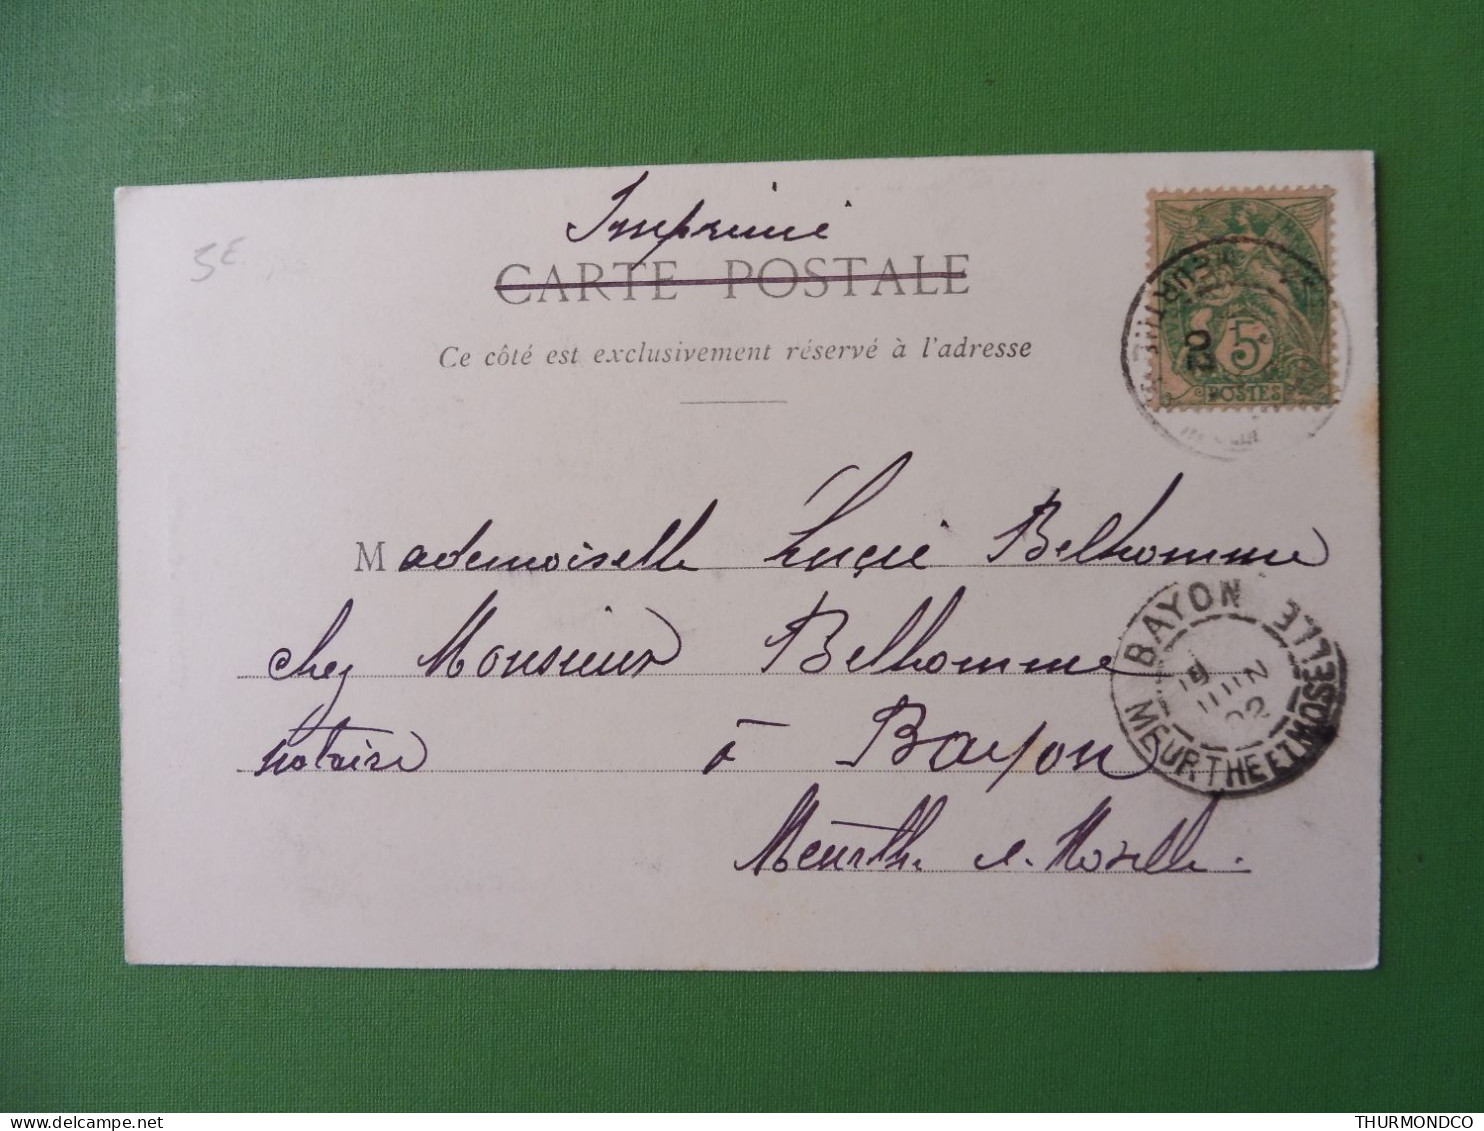 5€
Imprimé
CARTE POSTALE
Ce côté est exclusivement réservé à l'adresse
MEURTHE
02
5c
POSTES
Mademoiselle Lucie Belhomme
chez Monsieur Belhomme
notaire à Bayon
Meurthe et Moselle.
BAYON
JUIN
02
MEURTHE ET MOSELLE
THURMONDCO